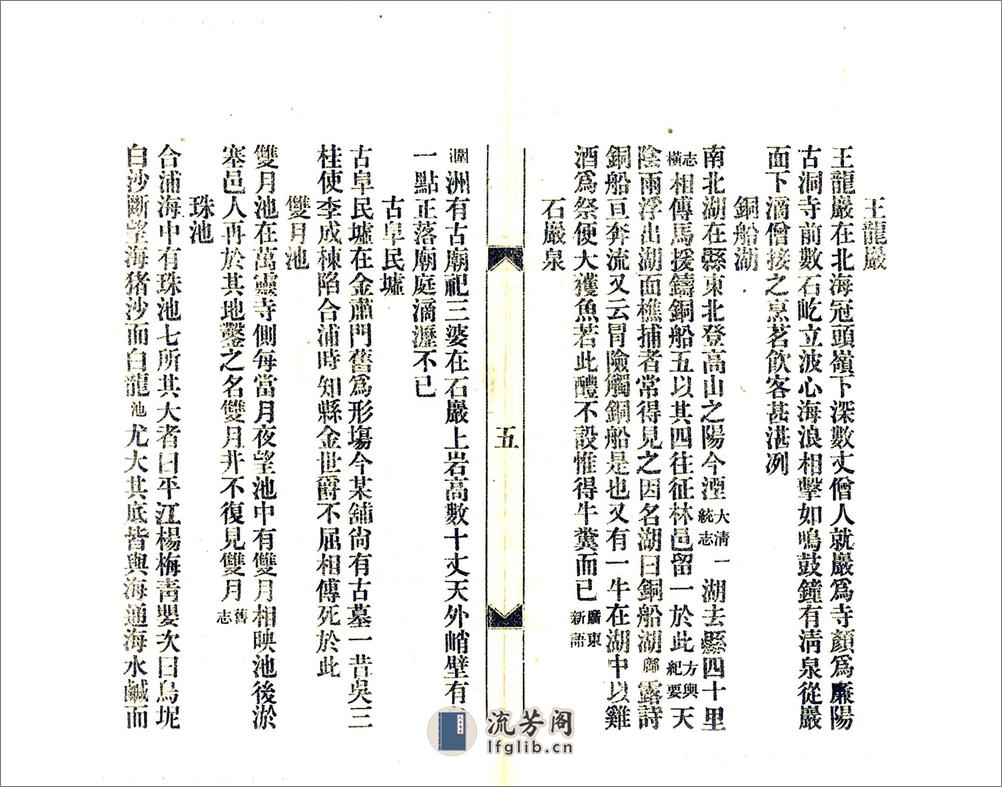 王龍巖
王龍巖在北海冠頭嶺下深數丈僧人就巖爲寺顏爲廉陽
古洞寺前數石屹立波心海浪相擊如鳴鼓鐘有淸泉從巖
面下滴僧接之烹茗飮客甚湛冽
銅船湖
南北湖在縣東北登高山之陽今湮大淸統志一湖去縣四十里
志橫相傳馬援鑄銅船五以其四往征林邑留一於此方輿紀要天
陰雨浮出湖面樵捕者常得見之因名湖曰銅船湖鄺露詩
銅船亘奔流又云冒險觸銅船是也又有一牛在湖中以雞
酒爲祭便大獲魚若此醴不設惟得牛糞而已廣東新語
石巖泉
五
潿洲有古廟祀三婆在石巖上岩高數十丈天外峭壁有
一點正落廟庭滴瀝不已
古阜民墟
古阜民墟在金肅門舊爲形塲今某舖尙有古墓一昔吳三
桂使李成棟陷合浦時知縣金世爵不屈相傳死於此
雙月池
雙月池在萬靈寺側每當月夜望池中有雙月相映池後淤
塞邑人再於其地鑿之名雙月井不復見雙月舊志
珠池
合浦海中有珠池七所其大者曰平江楊梅靑嬰次曰烏坭
白沙斷望海猪沙而白龍池尤大其底皆與海通海水鹹而
流芳阁
lfglib.cn